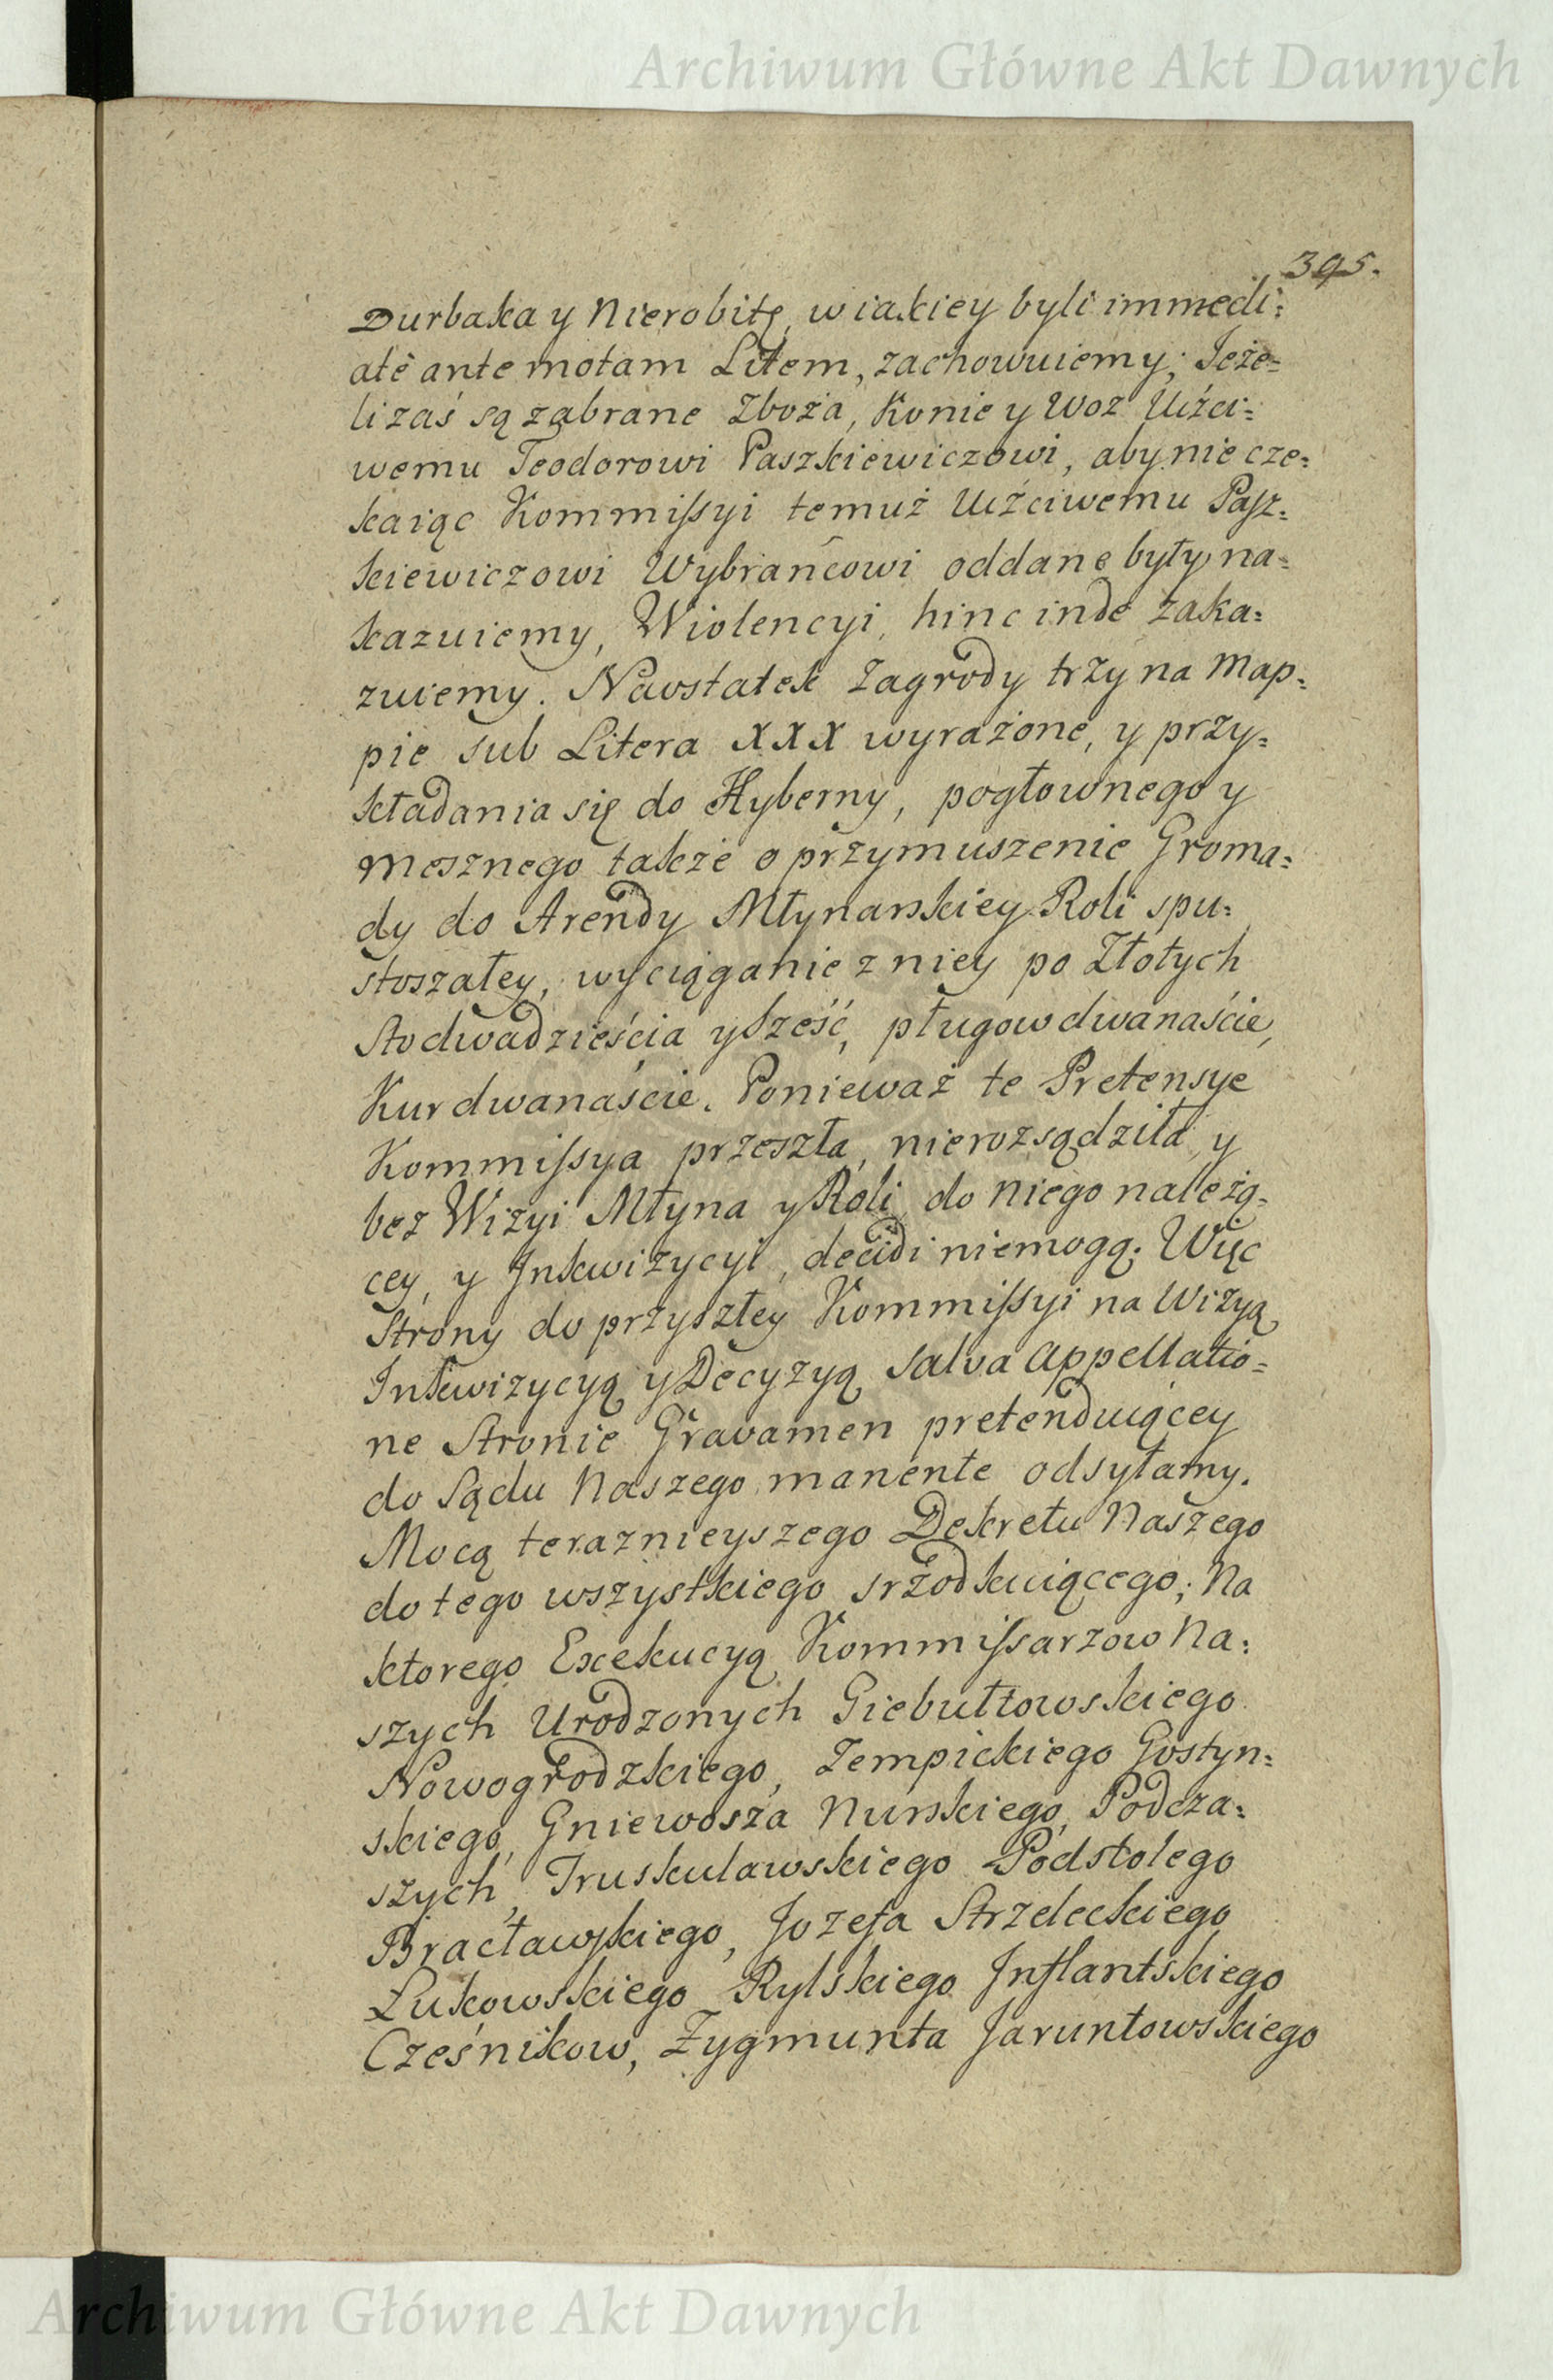 Archiwum Główne Akt Dawnych
395.
Durbaka y Nierobitę, w iakiey byli immedi:
atè ante motam Litem, zachowuiemy; Jeże=
li zaś są zabrane Zboża, Konie y Woz Uźci=
wemu Teodorowi Paszkiewiczowi, aby nie cze=
kaiąc Kommissyi temuż Uźciwemu Pasz=
kiewiczowi Wybrańcowi oddane były na=
kazuiemy, Wiolencyi, hinc inde zaka=
zuiemy. Naostatek Zagrody trzy na Map=
pie sub Litera XXX wyrażone, y przy=
kładania się do Hyberny, pogłownego y
mesznego także o przymuszenie Groma=
dy do Arendy Młynarskiey Roli spu=
stoszałey, wyciąganie z niey po Złotych
Stodwadzieścia y sześć, pługow dwanaście,
Kur dwanaście. Ponieważ te Pretensye
Kommissya przeszła, nierozsądziła y
bez Wizyi Młyna y Roli do niego należą=
cey, y Inkwizycyi, decidi niemogą. Więc
Strony do przyszłey Kommissyi na Wizyą
Inkwizycyą y Decyzyą salva Appellatio=
ne Stronie Gravamen pretenduiącey
do Sądu Naszego manente odsyłamy.
Mocą teraznieyszego Dekretu Naszego
do tego wszystkiego srzodkuiącego; Na
ktorego Exekucyą Kommissarzow Na=
szych Urodzonych Giebułtowskiego
Nowogrodzkiego, Zempickiego Gostyn=
skiego, Gniewosza Nurskiego, Podcza=
szych, Truskulawskiego Podstolego
Bracławskiego, Jozefa Strzeleckiego
Łukowskiego Rylskiego Inflantskiego
Cześnikow, Zygmunta Jaruntowskiego
Archiwum Główne Akt Dawnych